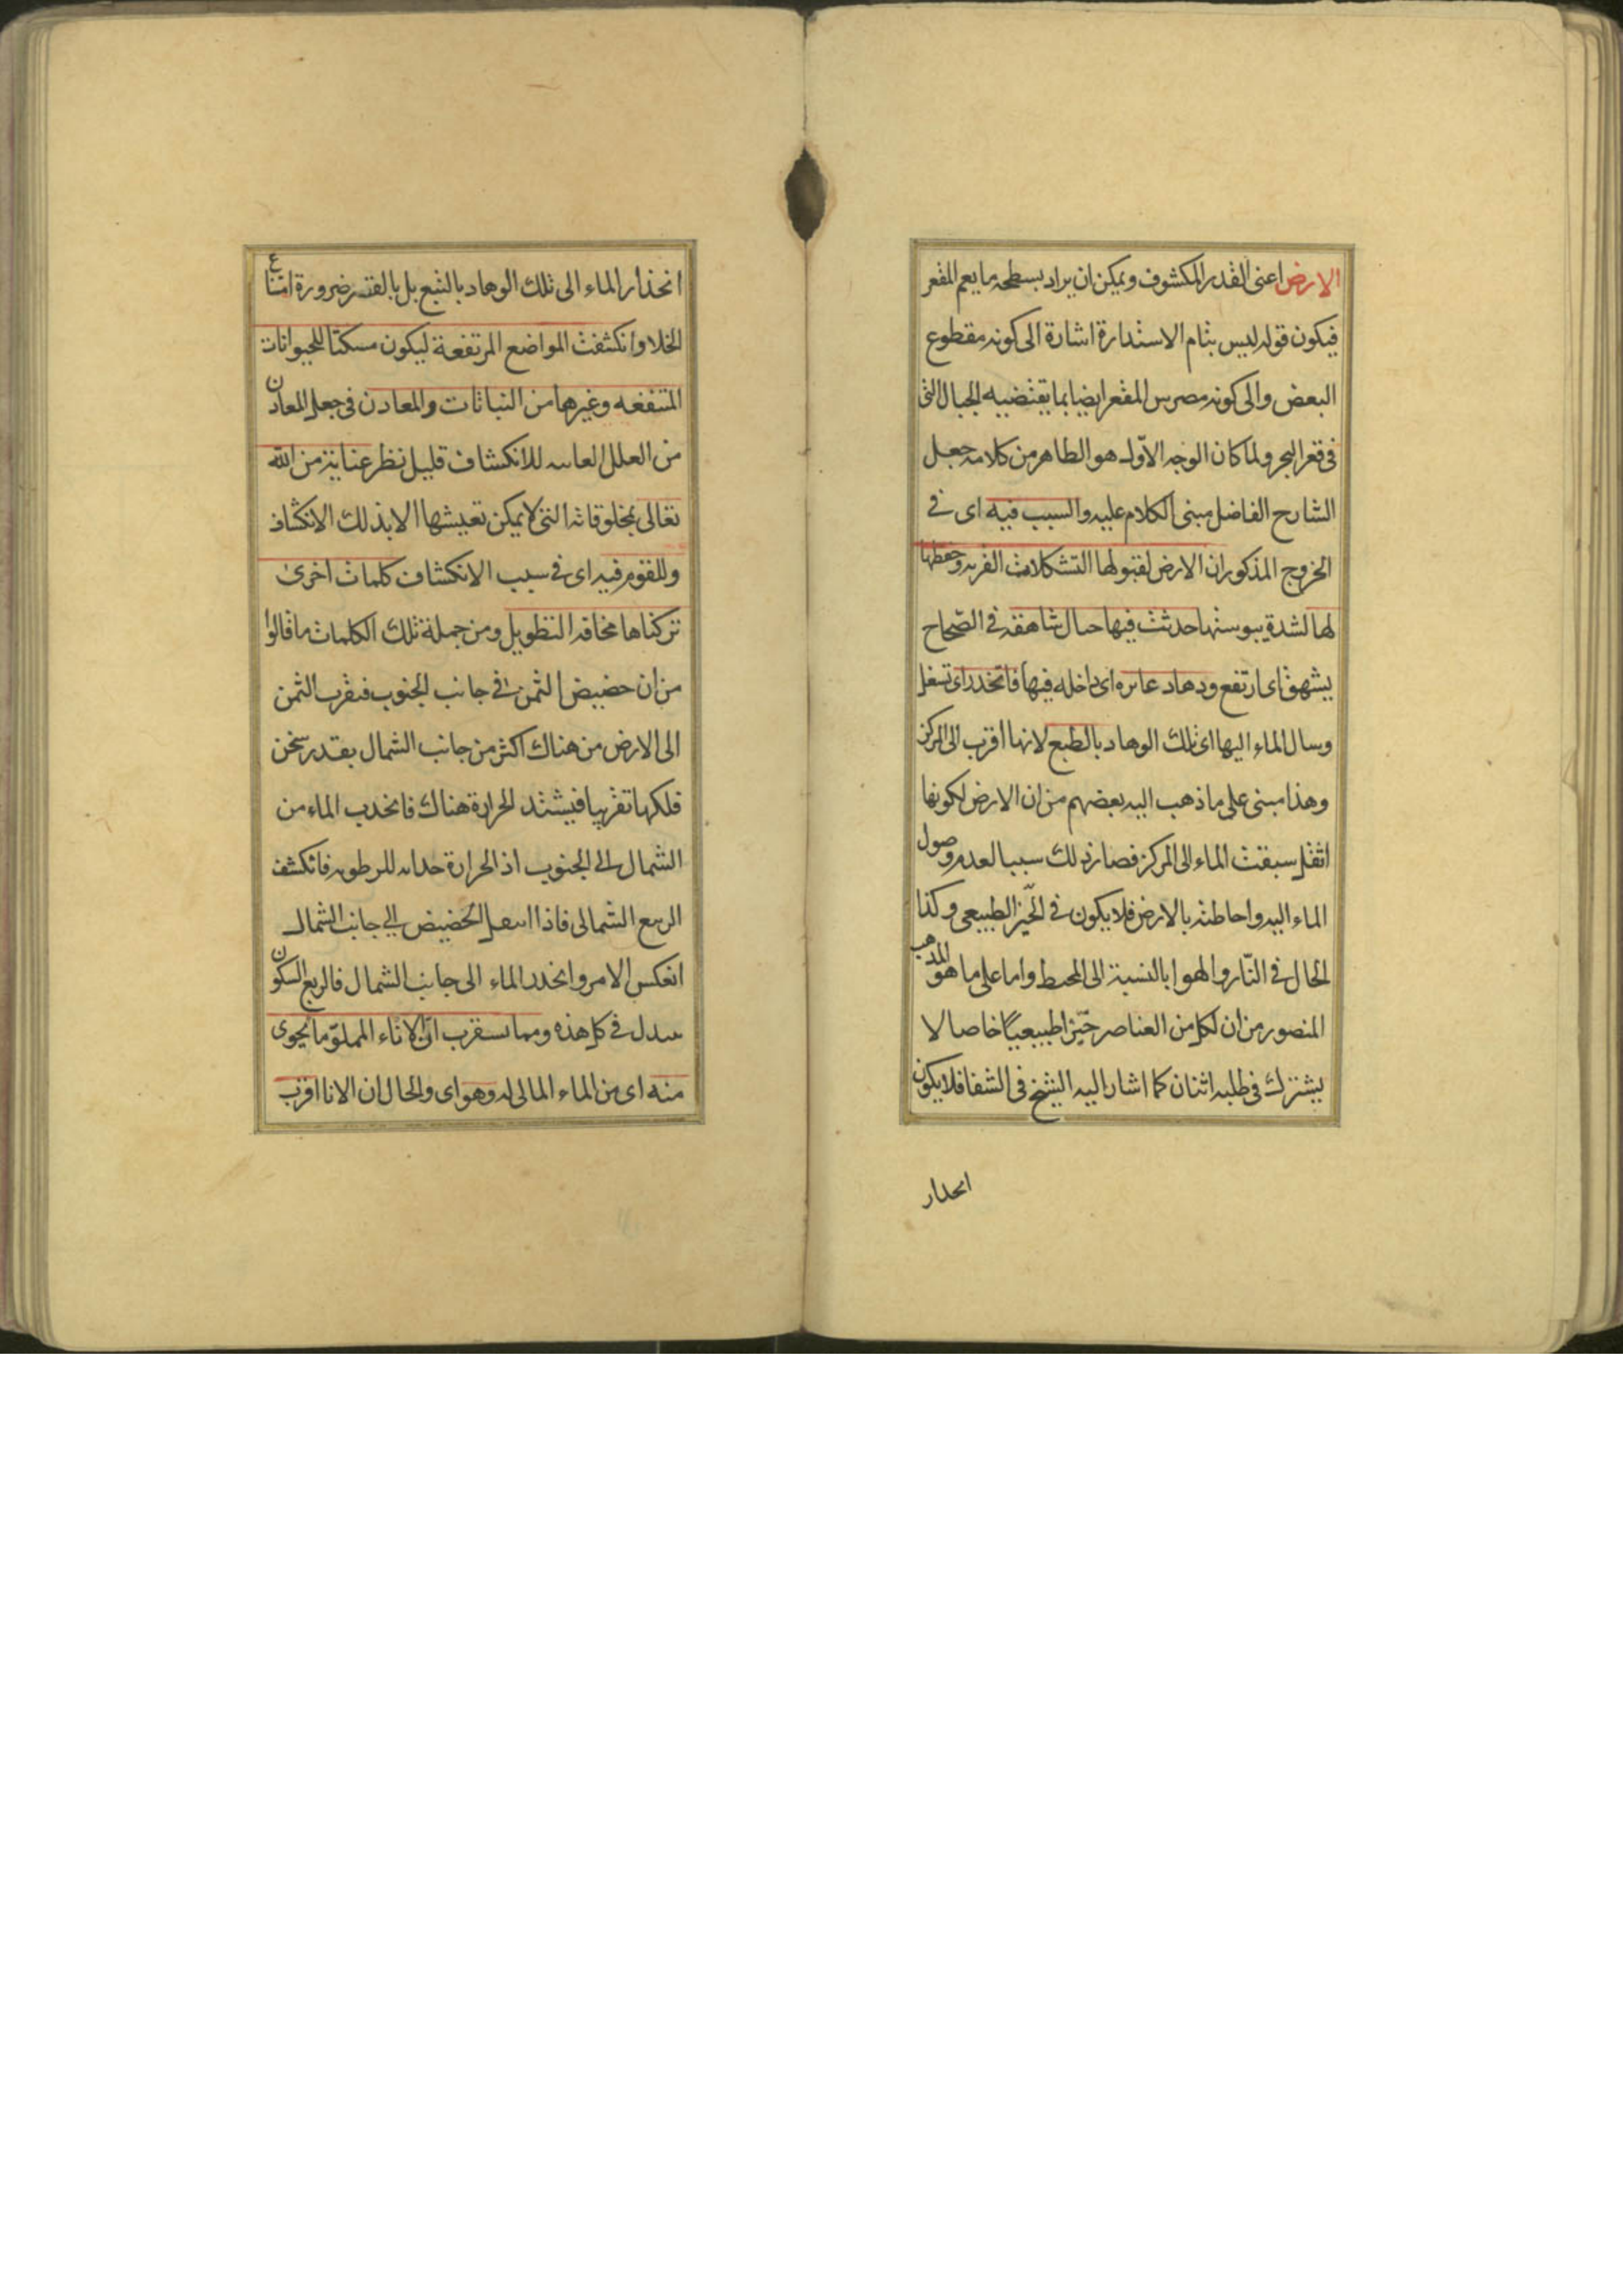 الارض اعنى القدر المكشوف ويمكن ان يراد بسطحه ما يعم المقعر
فيكون قوله ليس بتام الاستدارة اشارة الى كونه مقطوع
البعض والى كونه مضرس المقعر ايضا بما يقتضيه الجبال التى
فى قعر البحر ولما كان الوجه الاول هو الظاهر من كلامه جعل
الشارح الفاضل مبنى الكلام عليه والسبب فيه اى فى
الخروج المذكور ان الارض لقبولها التشكلات القريه وحفظها
لها لشدة يبوستها حدثت فيها جبال شاهقه فى الصّحاح
يشهق اى ارتفع ووهاد غائره اى داخله فيها فانحدر اى تسفل
وسال الماء اليها اى تلك الوهاد بالطبع لانها اقرب الى المركز
وهذا مبنى على ما ذهب اليه بعضهم من ان الارض لكونها
اثقل سبقت الماء الى المركز فصار ذلك سببا لعدم وصول
الماء اليه واحاطته بالارض فلا يكون فى الحيّز الطبيعى وكذا
الحال فى النّار والهوا بالنسبة الى المحيط واما على ما هو المذهب
المنصور من ان لكل من العناصر حيّزا طبيعيّا خاصا لا
يشترك فى طلبه اثنان كما اشار اليه الشيخ فى الشفا فلا يكون
انحدار
انحذار الماء الى تلك الوهاد بالتبع بل بالقسر ضرورة امتناع
الخلا وانكشفت المواضع المرتفعة ليكون مسكنا للحيوانات
المتنفسه وغيرها من النباتات والمعادن فى جعل المعادن
من العلل الغائيه للانكشاف قليل نظر عناية من الله
تعالى بمخلوقاته التى لا يمكن تعيشها الا بذلك الانكشاف
وللقوم فيه اى فى سبب الانكشاف كلمات اخرى
تركناها مخافة التطويل ومن جملة تلك الكلمات ما قالوا
من ان حضيض الشمس فى جانب الجنوب فتقرب الشمس
الى الارض من هناك اكثر من جانب الشمال بقدر سخن
فلكها تقريبا فيشتد الحرارة هناك فانجذب الماء من
الشمال الى الجنوب اذ الحرارة جذابه للرطوبه فانكشف
الربع الشمالى فاذا انتقل الحضيض الى جانب الشمال
انعكس الامر وانحدر الماء الى جانب الشمال فالربع المسكون
يتبدل فى كل هذه ومما يستغرب انّ الاناء المملوّ ما يحوى
منه اى من الماء المالى له وهو اى والحال ان الانا اقرب